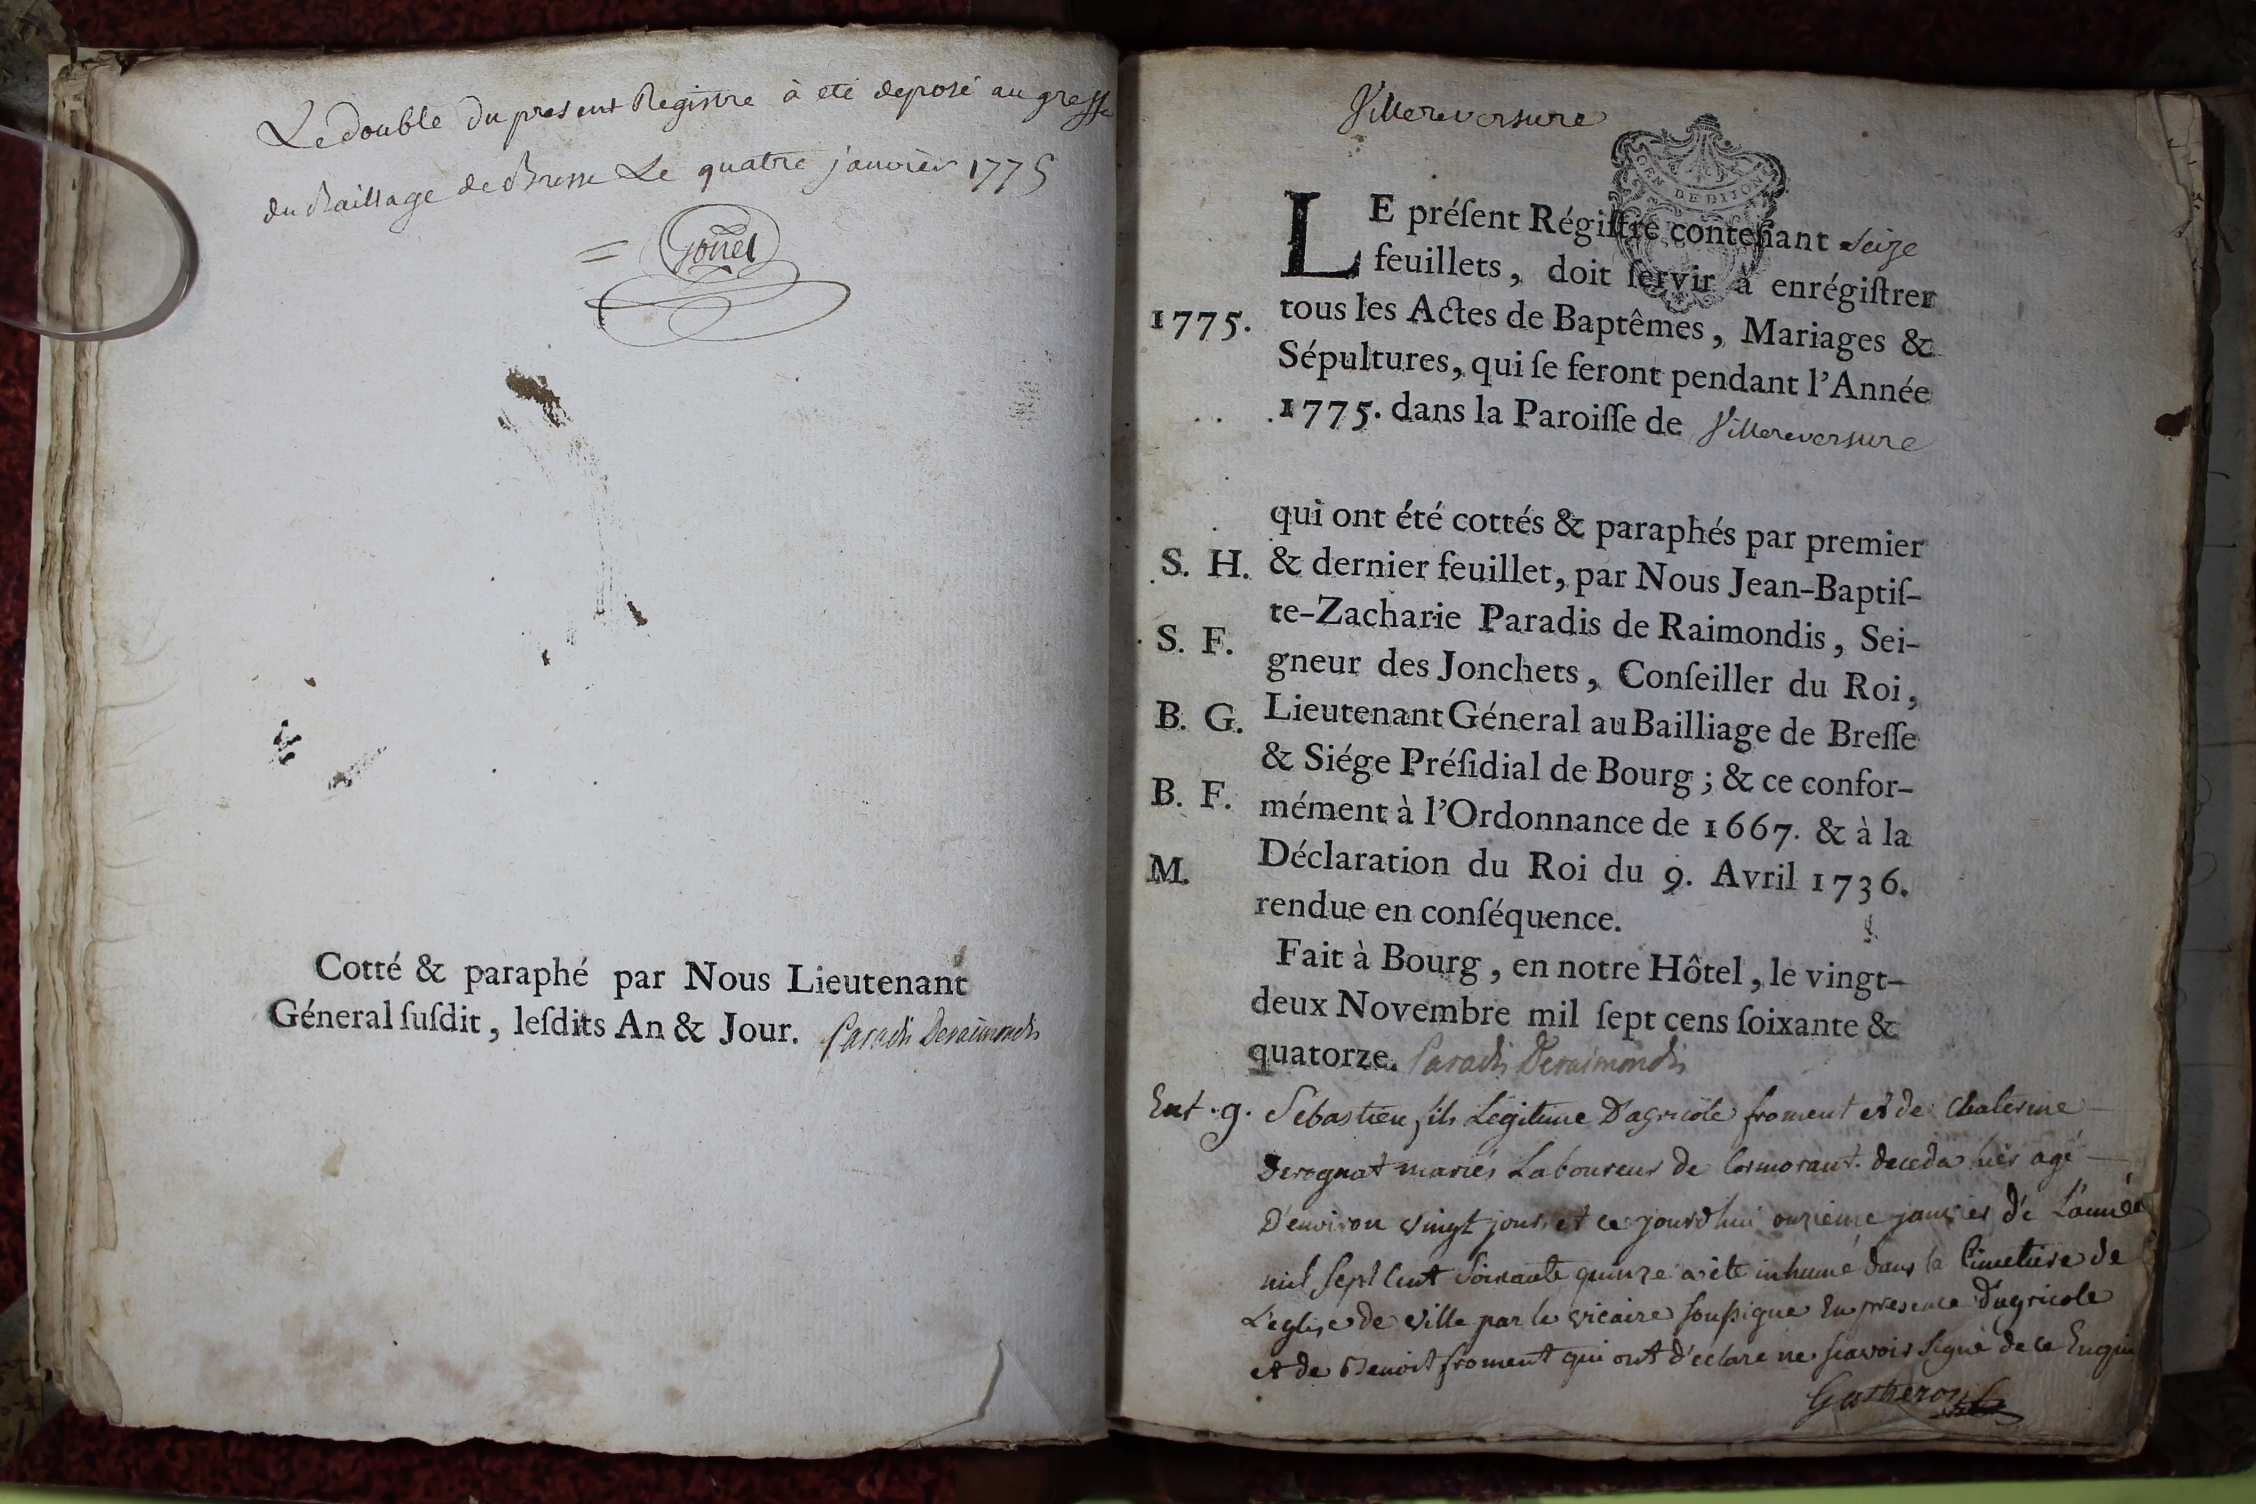 Le double du present Registre à été deposé au greffe
du Bailliage de Bresse Le quatre janvier 1775
= Gonet
Cotté & paraphé par Nous Lieutenant
Géneral ſuſdit, leſdits An & Jour. Paradis Deraimondis
Villereversure
GEN DE DIJON
LE préſent Régiſtre contenant seize
feuillets, doit ſervir à enrégiſtrer
1775. tous les Actes de Baptêmes, Mariages &
Sépultures, qui ſe feront pendant l'Année
1775. dans la Paroiſſe de Villereversure
qui ont été cottés & paraphés par premier
S. H. & dernier feuillet, par Nous Jean-Baptiſ-
te-Zacharie Paradis de Raimondis, Sei-
S. F. gneur des Jonchets, Conſeiller du Roi,
B. G. Lieutenant Géneral au Bailliage de Breſſe
& Siége Préſidial de Bourg ; & ce confor-
B. F. mément à l'Ordonnance de 1667. & à la
M. Déclaration du Roi du 9. Avril 1736.
rendue en conſéquence.
Fait à Bourg, en notre Hôtel, le vingt-
deux Novembre mil ſept cens ſoixante &
quatorze. Paradis Deraimondis
Ent. g. Sebastien fils Legitime D'agricole froment et de
Derognat mariés Laboureur de Cormorant. deceda hier agé
D'environ vingt jours, et ce jourd'hui onzieme janvier de L'année
mil sept Cent Soixante quinze a été inhumé dans le Cimetiere de
L'eglise de Ville par le vicaire soussigné En presence d'agricole
et de Benoit froment qui ont d'eclaré ne scavoir signé de ce Enquis